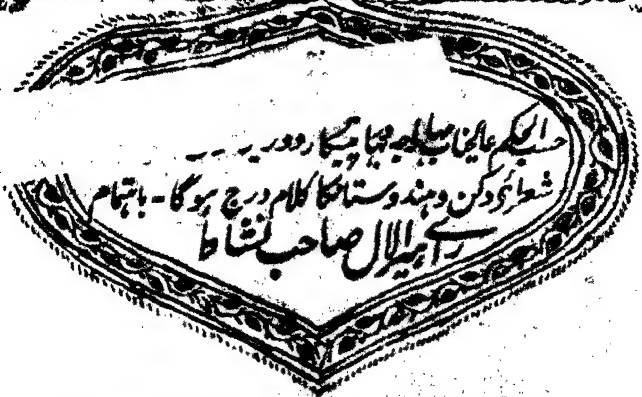 حسب الحکم عالیجناب مہاراجہ بہا پیشکار و وزیر
شعرائے دکن و ہندوستان کا کلام درج ہوگا - باہتمام
رائے ہیرا لال صاحب نشاط